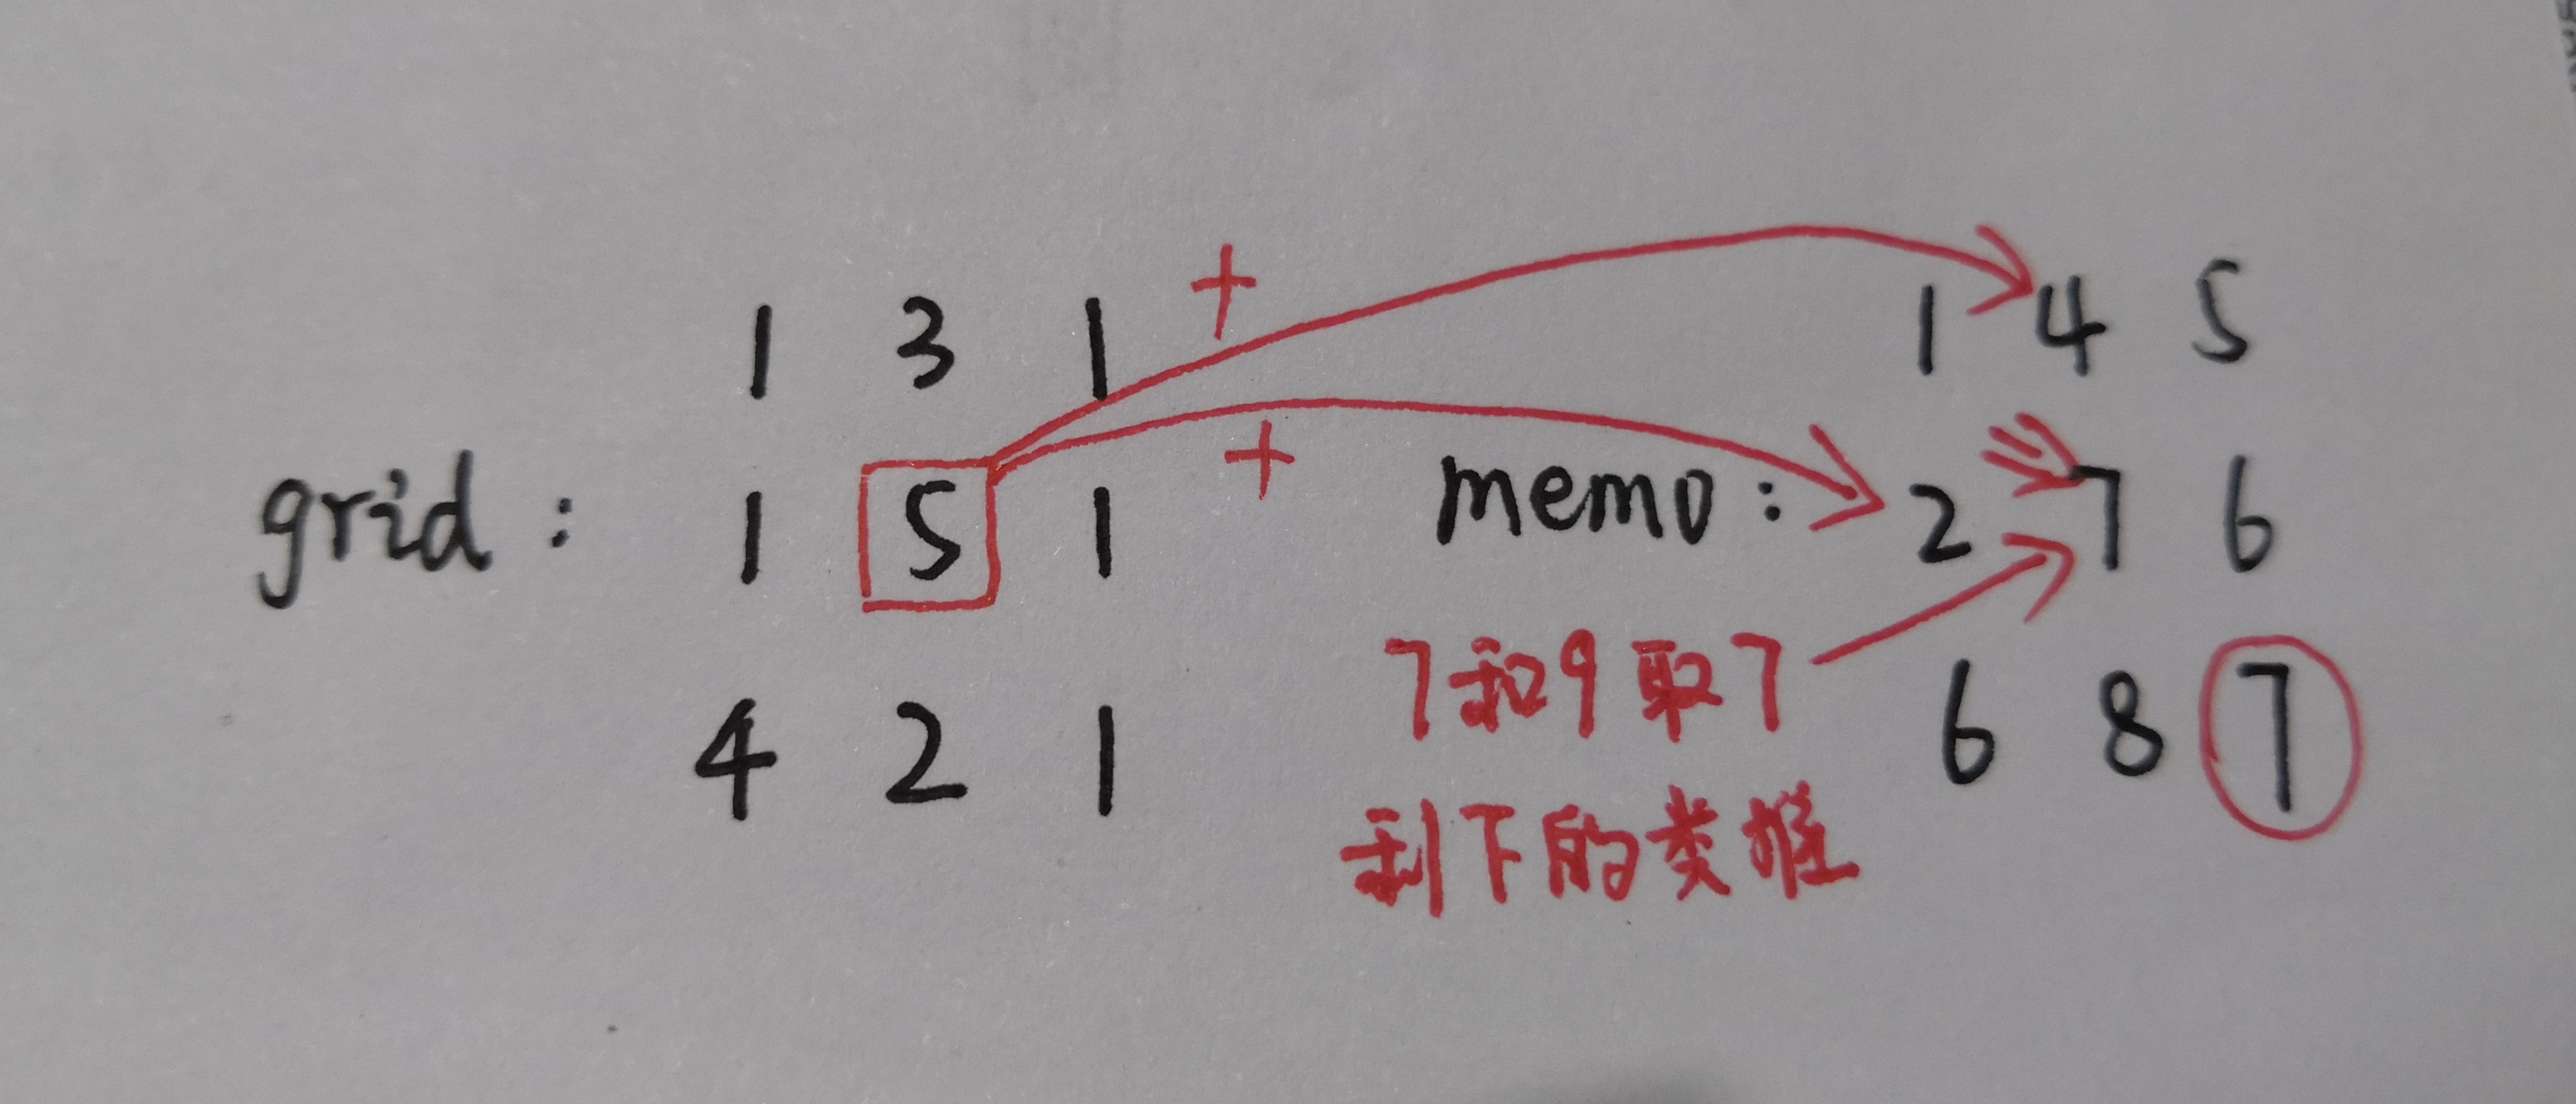 1 3 1 + 1 4 5
grid: 1 5 1 + memo: 2 7 6
7和9取7
4 2 1 6 8 7
剩下的类推